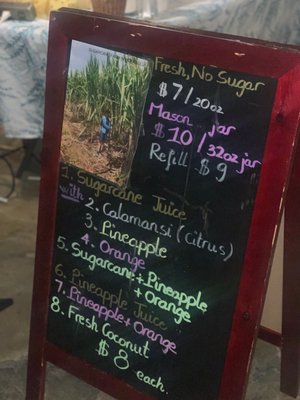 Fresh, No Sugar
$7/20oz
Mason jar
$10/32oz jar
Refill $9
1. Sugarcane Juice
with
2. Calamansi (Citrus)
3. Pineapple
4. Orange
5. Sugarcane + Pineapple
+ Orange
6. Pineapple Juice
7. Pineapple + Orange
8. Fresh Coconut
$8 each.